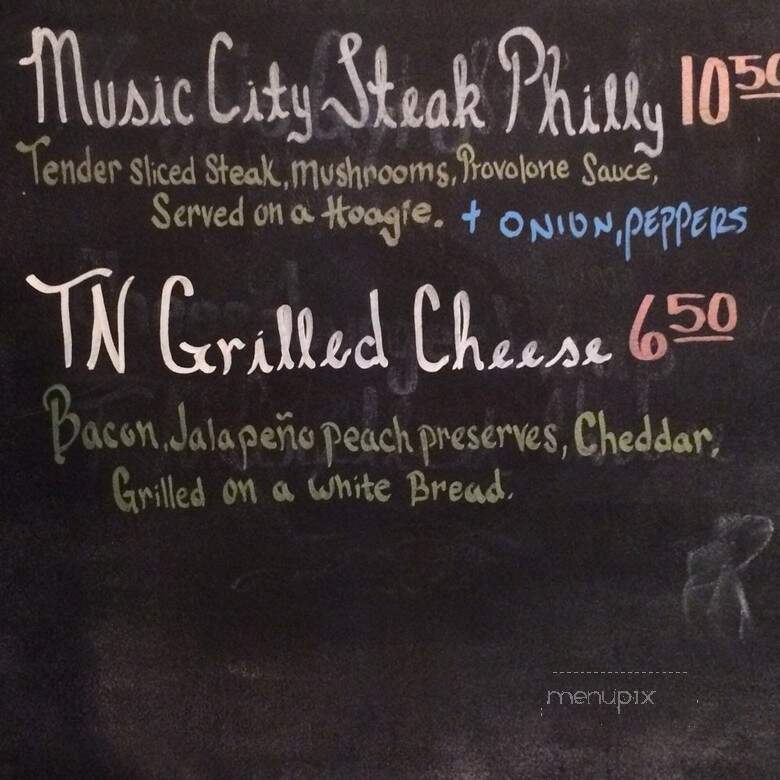 Music City Steak Philly 10 50
Tender Sliced Steak, Mushrooms, Provolone Sauce,
Served on a Hoagie. + ONION, PEPPERS
TN Grilled Cheese 6 50
Bacon, Jalapeño peach preserves, Cheddar,
Grilled on a White Bread.
menupix